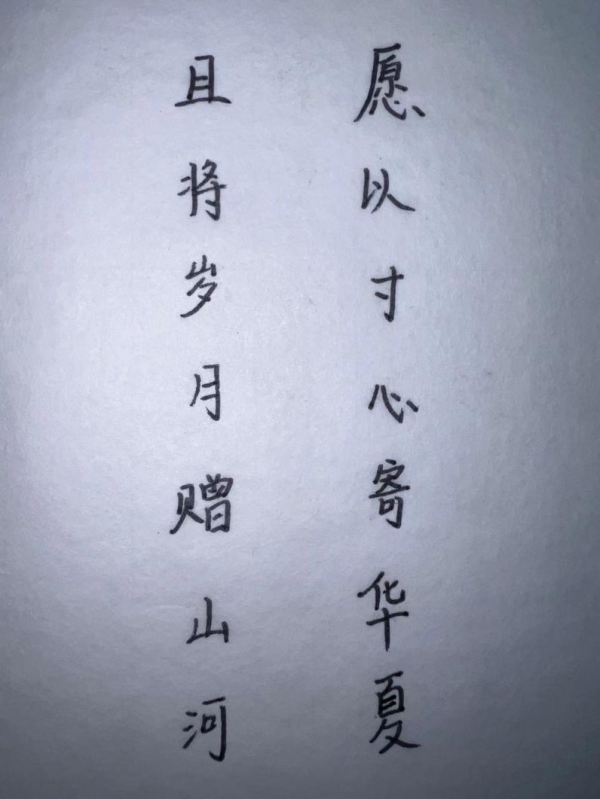 愿以寸心寄华夏
且将岁月赠山河